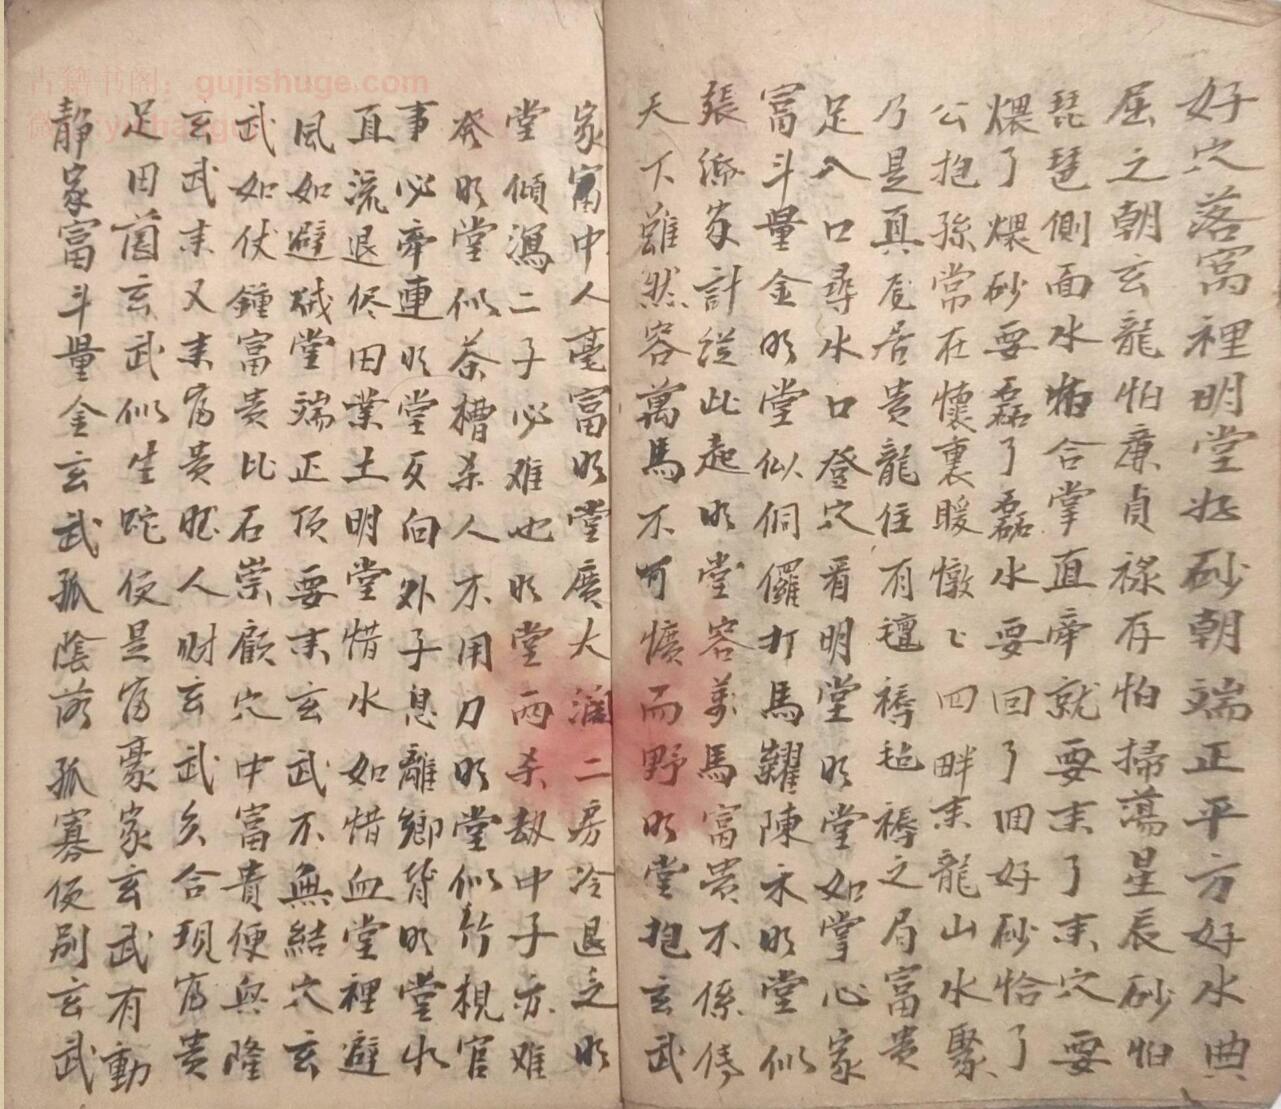 好穴落窩裡明堂好砂朝端正平方好水典
屈之朝玄龍怕廉貞祿存怕掃蕩星辰砂怕
琵琶側面水怕合掌直牽就要未了未穴要
煨了煨砂要磊了磊水要回了回好砂恰了
公抱孫常在懷裏暖墩〻四畔未龍山水聚
乃是真龙居貴龍住有氊褥毡褥之局富贵
足入口尋水口登穴看明堂明堂如掌心家
富斗量金明堂似侗儸打馬糶陳禾明堂似
張家計從此起明堂容萬馬富贵不係
天下雖然容萬馬不可懭而野明堂抱玄武
家富中人毫富明堂廣大濶二房冷退之明
堂傾瀉二子必难也明堂兩杀刼中子亦难
癸明堂似茶槽杀人不用刀明堂似竹梘官
事必牽連明堂反向外子息離鄉背明堂水
直流退侭田業土明堂惜水如惜血堂裡避
風如避贼堂端正頂要未玄武不無結穴玄
武如伏鍾富贵比石崇顧穴中富貴便興隆
玄武未又未富贵旺人财玄武久合現富贵
足田茵玄武似生蛇便是富豪家玄武有動
静家富斗量金玄武孤陰孤寡便别玄武
古籍书阁：gujishuge.com